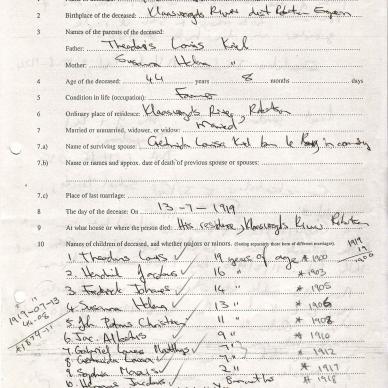 2 Birthplace of the deceased: Klaasvoogds River dist Robertson
3 Names of the parents of the deceased:
Father: Theodoris Louis Kriel
Mother: Susanna Helena "
4 Age of the deceased: 44 years 8 months days
5 Condition in life (occupation): Farmer
6 Ordinary place of residence: Klaasvoogds River, Robertson
7 Married or unmarried, widower, or widow: Married
7.a) Name of surviving spouse: Louisa Kriel born le in comty
7.b) Name or names and approx. date of death of previous spouse or spouses:
7.c) Place of last marriage:
8 The day of the deceased: On 13-7-1919
9 At what house or where the person died: His residence, Klaasvoogds River Robertson
10 Names of children of deceased, and whether majors or minors. (Stating separately those born of different marriages).
1919
19
1900
1. Theodoris Louis 19 years of age * 1900
2. Jacobus 16 " * 1903
3. Frederik Johannes 14 " * 1905
4. Susanna Helena 13 " * 1906
5. Petrus 11 " * 1908
6. Jac. Albertus 9 " * 1910
7. Gabriel Louis Matthys 7 " * 1912
8 Louisa
9 Sophia 2 " * 1917
10 Jacobus * 1918
1919-07-13
44-08
* 1874-11